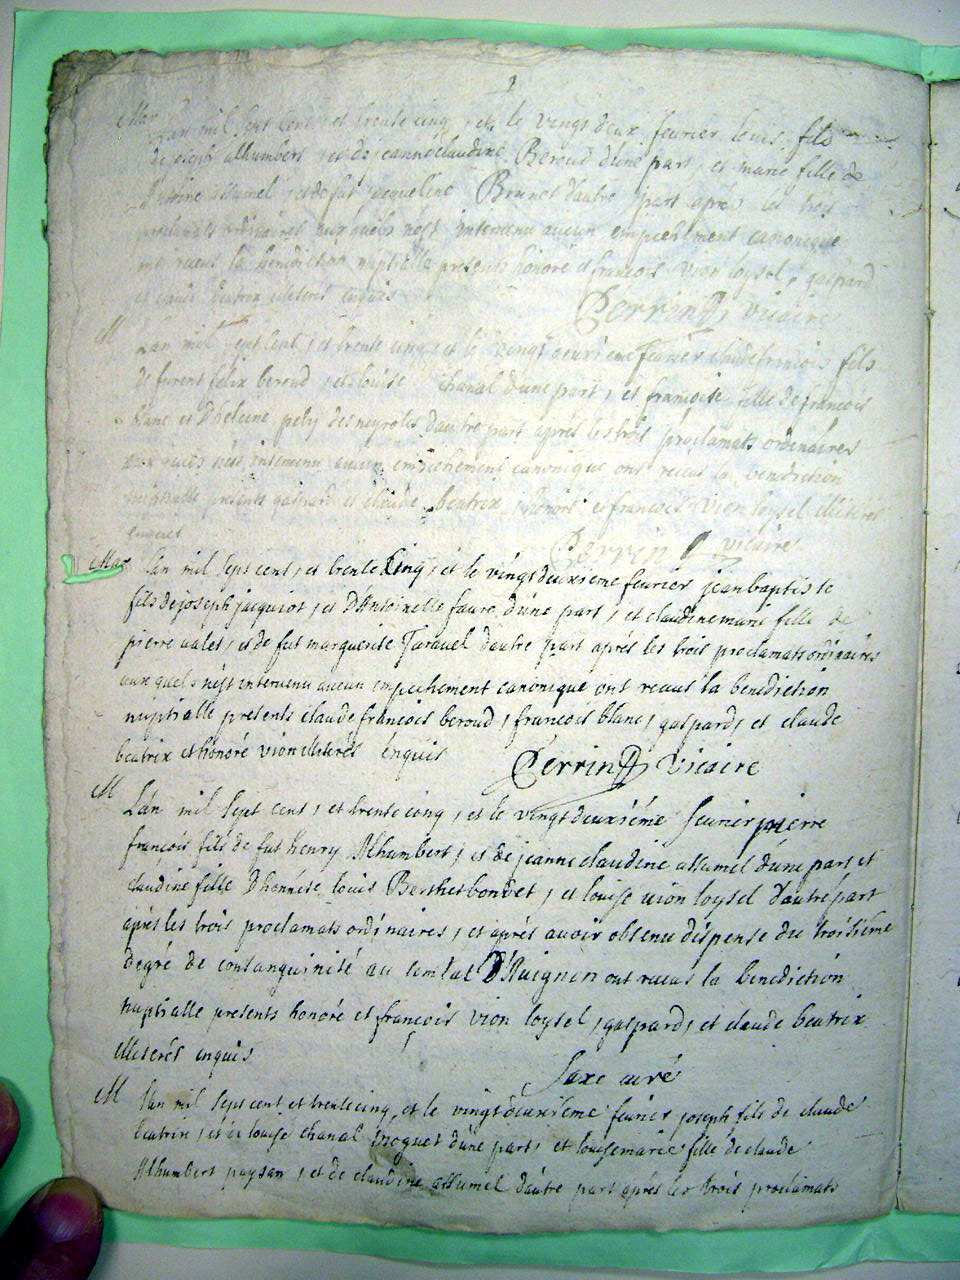 Mar L'an mil sept cent, et trente cinq, et le vingt deux fevrier louis fils
de joseph alhumbert, et de jeanneclaudine Beroud d'une part, et marie fille de
assumel, et de fut jacqueline Brunet d'autre part après les trois
proclamats ordinaires aux quels n'est intervenu aucun empechement canonique
ont receus la benediction nuptialle presents honoré et françois vion loysel, gaspard
et claude beatrix illeterés enquis Perrin vicaire
M L'an mil sept cent, et trente cinq, et le vingt deuxieme fevrier claudefrançois fils
de furent felix beroud, et louise chanal d'une part, et françoise fille de françois
blanc et d'heleine des neyrolles d'autre part après les trois proclamats ordinaires
aux quels n'est intervenu aucun empechement canonique ont receus la benediction
nuptialle presents gaspard et claude beatrix, honoré et françois vion loysel illeterés
enquis Perrin vicaire
Mar L'an mil sept cent, et trente cinq, et le vingt deuxieme fevrier jeanbaptiste
fils de joseph jacquiot, et d'Antoinette faure d'une part, et claudinemarie fille de
pierre valet, et de fut marguerite Taravel d'autre part après les trois proclamats ordinaires
aux quels n'est intervenu aucun empechement canonique ont receus la benediction
nuptialle presents claudefrançois beroud, françois blanc, gaspard, et claude
beatrix et honoré vion illeterés enquis Perrin vicaire
M L'an mil sept cent, et trente cinq, et le vingt deuxiéme fevrier pierre
françois fils de fut henry Alhumbert, et de jeanne claudine assumel d'une part et
claudine fille d'honnéste louis Berthet bondet, et louise vion loysel d'autre part
après les trois proclamats ordinaires, et après avoir obtenu dispense du troisiéme
degré de consanguinité au d'Avignon ont receus la benediction
nuptialle presents honoré et françois vion loysel, gaspard, et claude beatrix
illeterés enquis
Saxe curé
M L'an mil sept cent et trente cinq, et le vingt deuxiéme fevrier joseph fils de claude
beatrix, et de louise chanal d'une part, et louisemarie fille de claude
Alhumbert paysan, et de claudine assumel d'autre part après les trois proclamats